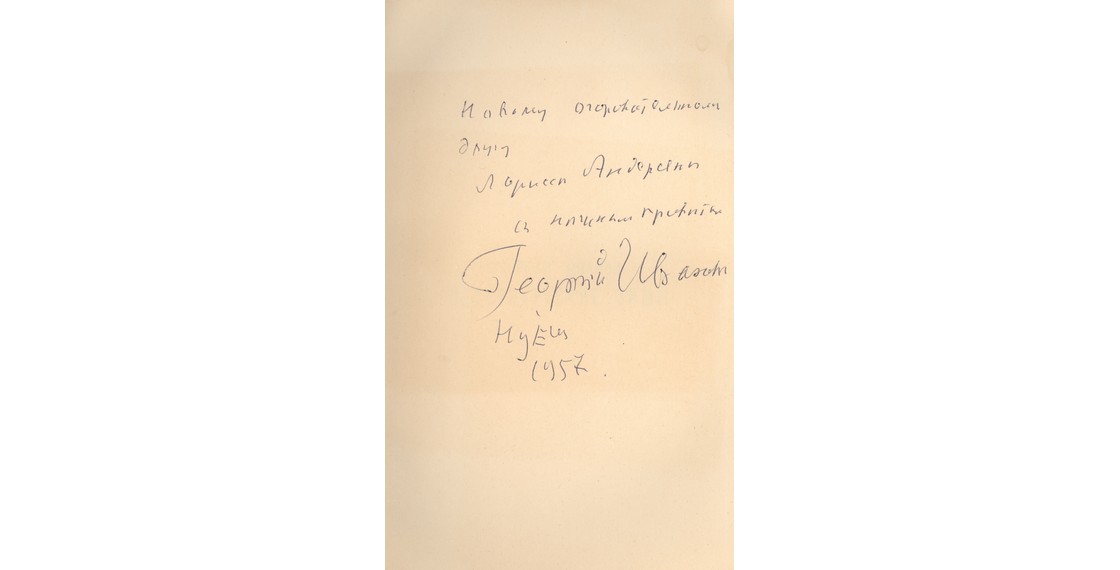 Новому очаровательному
другу
Ларисе Андерсен
с нежным приветом
Георгій Иванов
Hyères
1957.